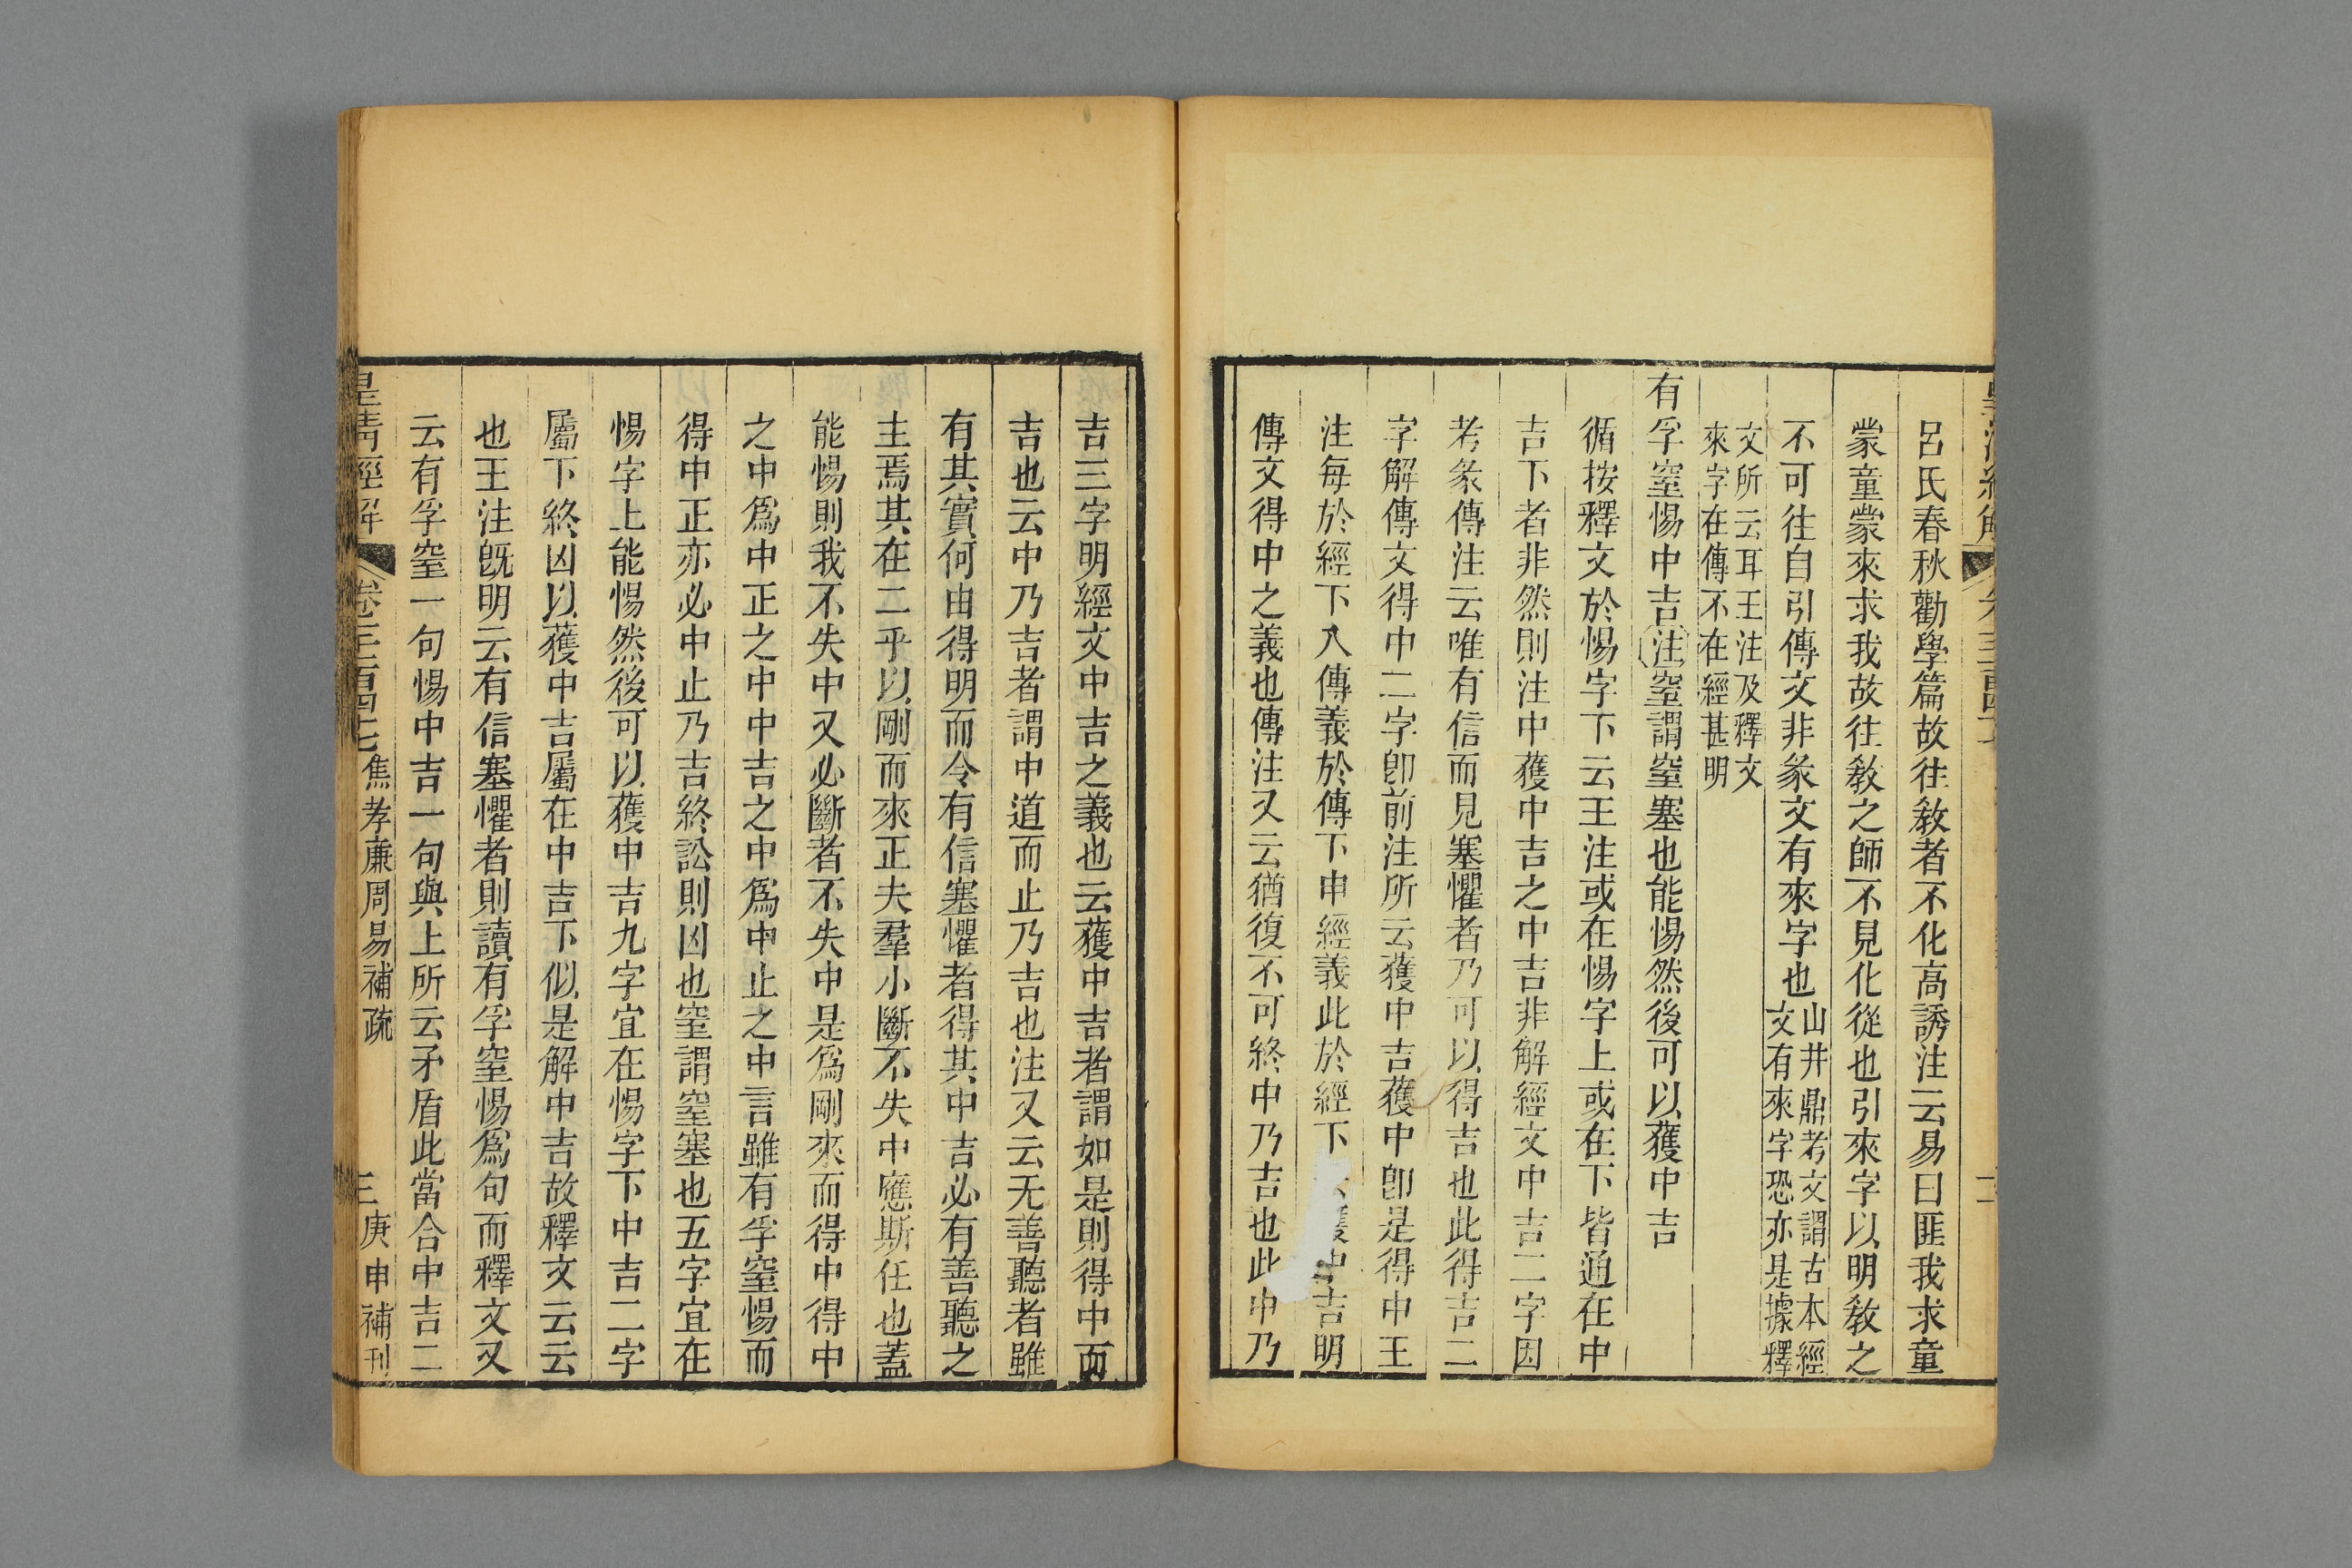 呂氏春秋勸學篇故往敎者不化高誘注云易曰匪我求童
蒙童蒙來求我故往敎之師不見化從也引來字以明敎之
不可往自引傳文非彖文有來字也
山井鼎考文謂古本經
文有來字恐亦是據釋
文所云耳王注及釋文
來字在傳不在經甚明
有孚窒惕中吉注窒謂窒塞也能惕然後可以獲中吉
循按釋文於惕字下云王注或在惕字上或在下皆通在中
吉下者非然則注中獲中吉之中吉非解經文中吉二字因
考彖傳注云唯有信而見塞懼者乃可以得吉也此得吉二
字解傳文得中二字卽前注所云獲中吉獲中卽是得中王
注每於經下入傳義於傳下申經義此於經下獲中吉明
傳文得中之義也傳注又云猶復不可終中乃吉也此中乃
吉三字明經文中吉之義也云獲中吉者謂如是則得中而
吉也云中乃吉者謂中道而止乃吉也注又云无善聽者雖
有其實何由得明而令有信塞懼者得其中吉必有善聽之
主焉其在二乎以剛而來正夫羣小斷不失中應斯任也蓋
能惕則我不失中又必斷者不失中是爲剛來而得中得中
之中爲中正之中中吉之中爲中止之中言雖有孚窒惕而
得中正亦必中止乃吉終訟則凶也窒謂窒塞也五字宜在
惕字上能惕然後可以獲中吉九字宜在惕字下中吉二字
屬下終凶以獲中吉屬在中吉下似是解中吉故釋文云云
也王注旣明云有信塞懼者則讀有孚窒惕爲句而釋文又
云有孚窒一句惕中吉一句與上所云矛盾此當合中吉二
皇清經解
卷三百四七
焦孝廉周易補疏
三
庚申補刊